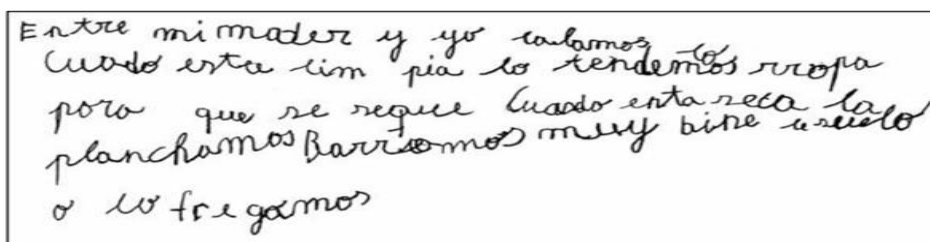 Entre mi mader y yo lalamos lo
Cuado esta lim pia lo tendemos rropa
pora que se seque Cuado enta seca la
planchamos Barriomos muy bine e suelo
o lo fregamos